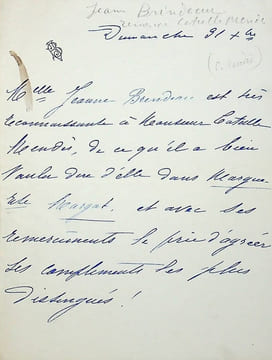 Jeanne Brindeau
remercie Catulle Mendès
Dimanche 31 Xbre
(C. Mendès)
Melle Jeanne Brindeau est très
reconnaissante à Monsieur Catulle
Mendès, de ce qu'il a bien
voulu dire d'elle dans Margue-
rite Margot. et avec ses
remerciements le prie d'agréer
ses compliments les plus
distingués!